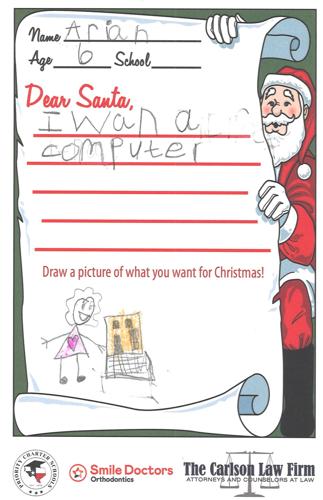 Name Arian
Age 6 School
Dear Santa,
I wan a
computer
Draw a picture of what you want for Christmas!
PRIORITY CHARTER SCHOOLS
Smile Doctors
Orthodontics
The Carlson Law Firm
ATTORNEYS AND COUNSELORS AT LAW